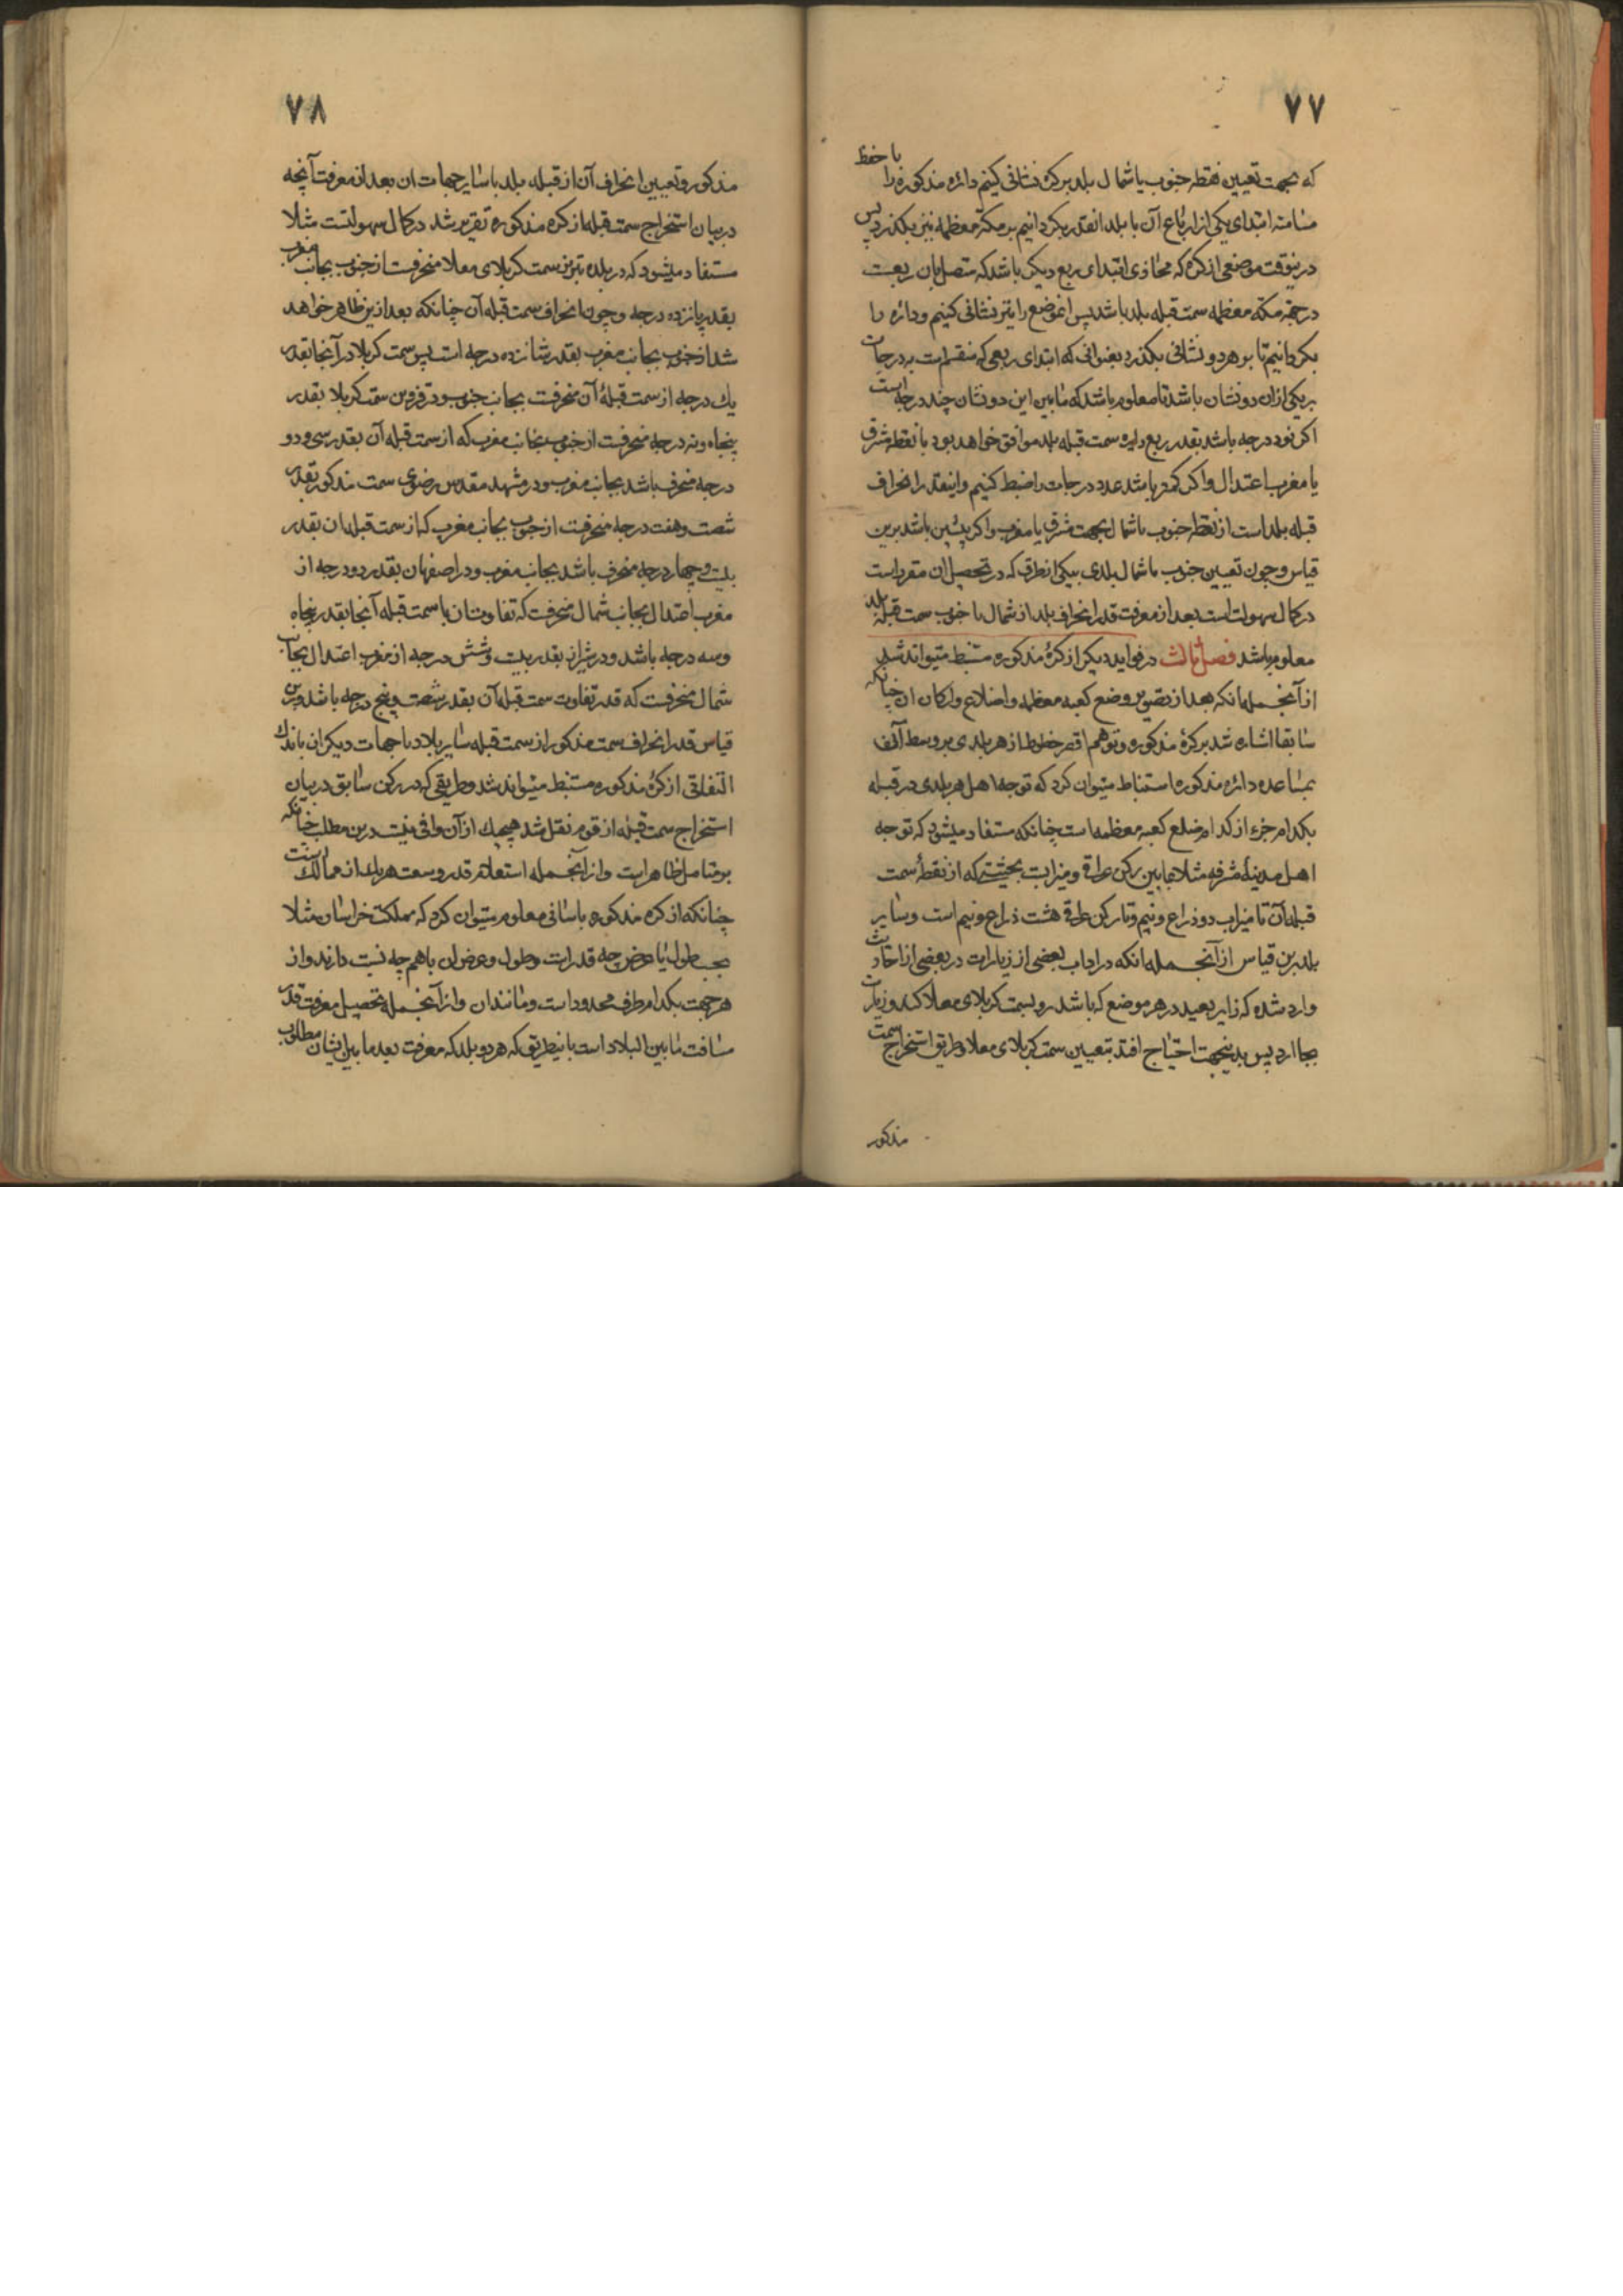 ۷۷
که بجهت تعیین نقطه جنوب یا شمال بلد بر کره نشانی کنیم دائره مذکوره را با حفظ
مسامته ابتدای یکی از ارباع آن با بلد انقدر بگردانیم بر مکه معظمه نیز بگذرد پس
درینوقت موضعی از کره که محاذی ابتدای ربع دیگر باشد که متصل بان ربعست
در جهة مکه معظمه سمت قبله بلد باشد پس انموضع را نیز نشانی کنیم و دائره را
بگردانیم تا بر هر دو نشانی بگذرد بعنوانی که ابتدای ربعی که منقسم است به درجات
بر یکی ازان دو نشان باشد تا معلوم باشد که مابین این دو نشان چند درجه است
اکر نود درجه باشد بقدر ربع دایره سمت قبله بلد موافق خواهد بود با نقطه مشرق
یا مغرب اعتدال و اکر کمتر باشد عدد درجات را ضبط کنیم و اینقدر انحراف
قبله بلد است از نقطه جنوب یا شمال بجهت مشرق یا مغرب و اکر بیش ازین باشد برین
قیاس و چون تعیین جنوب یا شمال بلدی بیکی از طرق که در تحصیل ان مقرر است
در کمال سهولت است بعد از معرفت قدر انحراف بلد از شمال یا جنوب سمت قبله بلد
معلوم باشد فصل ثالث در فواید دیگر از کره مذکوره مستنبط میتواند شد
از آنجمله انکه بعد از تصویر وضع کعبه معظمه و اضلاع و ارکان ان چنانکه
سابقا اشاره شد بر کره مذکوره و توهم اقصر خطوط از هر بلدی بر وسط آن
بمساعده دائره مذکوره استنباط میتوان کرد که توجه اهل هر بلدی در قبله
بکدام جزء از کدام ضلع کعبه معظمه است چنانکه مستفاد میشود که توجه
اهل مدینه مشرفه مثلا مابین رکن عراقی و میزابست بحیثیتی که از نقطه سمت
قبله آن تا میزاب دو ذراع و نیم و تا رکن عراقی هشت ذراع و نیم است و سایر
بلد برین قیاس از آنجمله انکه در اداب بعضی از زیارات در بعضی از احادیث
وارد شده که زایر بعید در هر موضع که باشد رو بسمت کربلای معلا کند و زیارت
بجا ارد پس بدینجهت احتیاج افتد بتعیین سمت کربلای معلا و طریق استخراج سمت
مذکور
۷۸
مذکور و تعیین انحراف آن از قبله بلد با سایر جهات ان بعد از معرفت آنچه
در بیان استخراج سمت قبله از کره مذکوره تقریر شد در کمال سهولتست مثلا
مستفاد میشود که در بلده تبریز سمت کربلای معلا منحرفست از جنوب بجانب مغرب
بقدر پانزده درجه و چون انحراف سمت قبله آن چنانکه بعد ازین ظاهر خواهد
شد از جنوب بجانب مغرب بقدر شانزده درجه است پس سمت کربلا در آنجا بقدر
یک درجه از سمت قبله آن منحرفست بجانب جنوب و در قزوین سمت کربلا بقدر
پنجاه و نه درجه منحرفست از جنوب بجانب مغرب که از سمت قبله آن بقدر سی و دو
درجه منحرف باشد بجانب مغرب و در مشهد مقدس رضوی سمت مذکور بقدر
شصت و هفت درجه منحرفست از جنوب بجانب مغرب که از سمت قبله ان بقدر
بیست و چهار درجه منحرف باشد بجانب مغرب و در اصفهان بقدر دو درجه از
مغرب اعتدال بجانب شمال منحرفست که تفاوت ان با سمت قبله آنجا بقدر پنجاه
و سه درجه باشد و در شیراز بقدر بیست و شش درجه از مغرب اعتدال بجانب
شمال منحرفست که قدر تفاوت سمت قبله آن بقدر شصت و پنج درجه باشد و برین
قیاس قدر انحراف سمت مذکور از سمت قبله سایر بلاد با جهات دیگر ان باندک
التفاتی از کره مذکوره مستنبط میتواند شد و طریقی که در رکن سابق در بیان
استخراج سمت قبله از قوم نقل شد هیچیک از آن وافی نیست درین مطلب چنانکه
بر متامل ظاهر است و از آنجمله استعلام قدر وسعت هر یک از ممالک است
چنانکه از کره مذکوره باسانی معلوم میتوان کرد که مملکت خراسان مثلا
بحسب طول یا عرض چه قدر است و طول و عرض ان باهم چه نسبت دارند و از
هر جهت بکدام طرف محدود است و مانند ان و از آنجمله تحصیل معرفت قدر
مسافت مابین البلاد است باینطریق که هر دو بلد که معرفت بعد مابین ایشان مطلوب